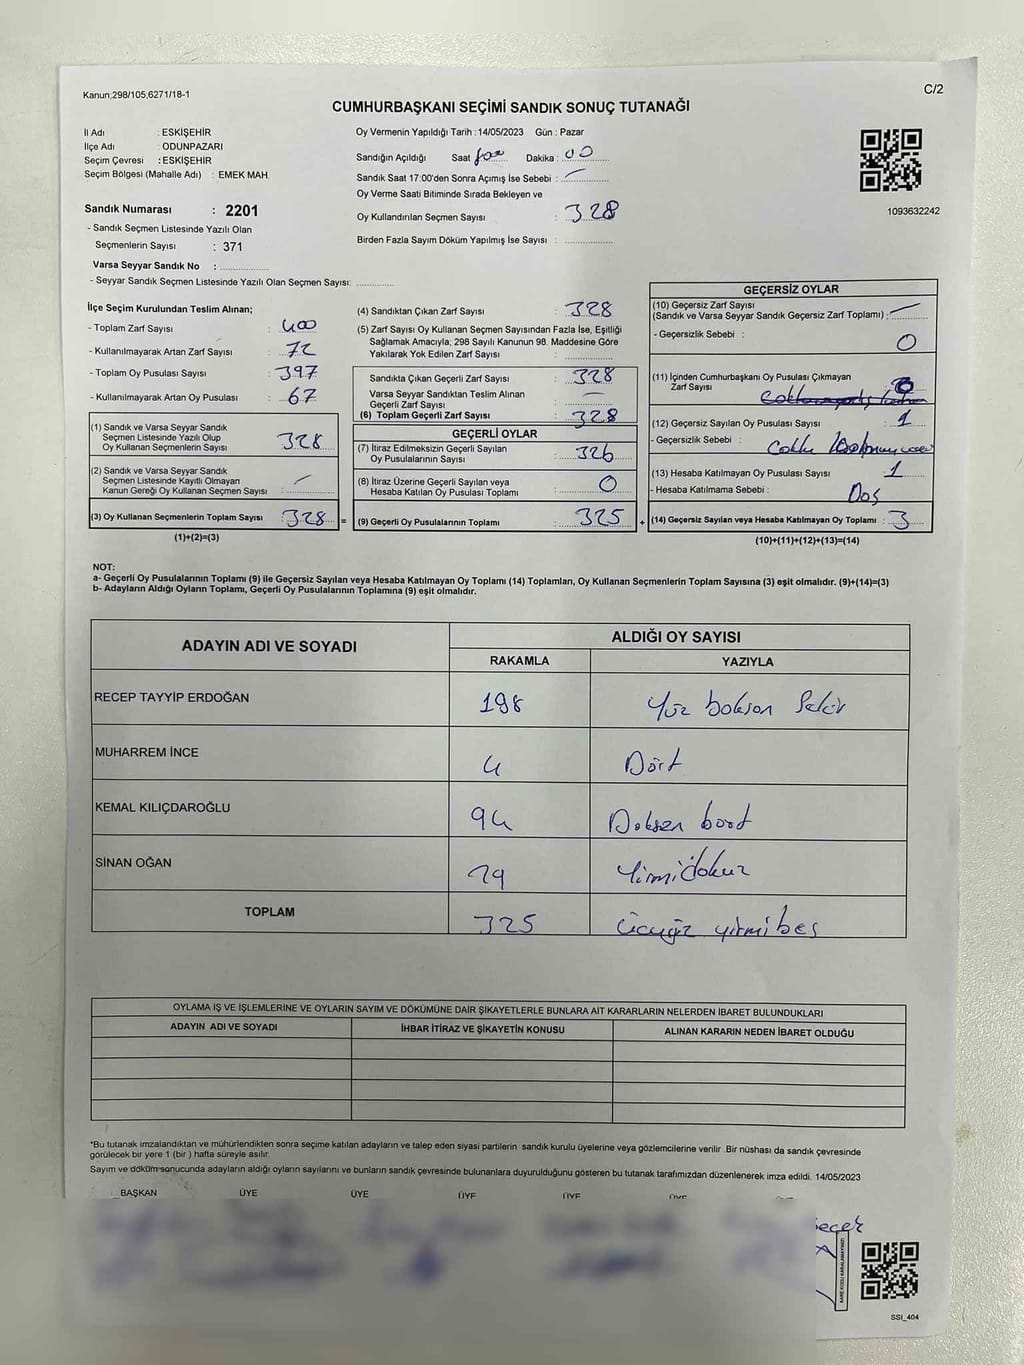 Kanun;298/105,6271/18-1
C/2
CUMHURBAŞKANI SEÇİMİ SANDIK SONUÇ TUTANAĞI
İl Adı : ESKİŞEHİR
İlçe Adı : ODUNPAZARI
Seçim Çevresi : ESKİŞEHİR
Seçim Bölgesi (Mahalle Adı) : EMEK MAH.
Sandık Numarası : 2201
- Sandık Seçmen Listesinde Yazılı Olan
Seçmenlerin Sayısı : 371
Varsa Seyyar Sandık No :
- Seyyar Sandık Seçmen Listesinde Yazılı Olan Seçmen Sayısı:
Oy Vermenin Yapıldığı Tarih : 14/05/2023 Gün : Pazar
Sandığın Açıldığı Saat Dakika : 00
Sandık Saat 17:00'den Sonra Açımış İse Sebebi : -
Oy Verme Saati Bitiminde Sırada Bekleyen ve
Oy Kullandırılan Seçmen Sayısı : 328
Birden Fazla Sayım Döküm Yapılmış İse Sayısı :
1093632242
İlçe Seçim Kurulundan Teslim Alınan;
- Toplam Zarf Sayısı : 400
- Kullanılmayarak Artan Zarf Sayısı : 72
- Toplam Oy Pusulası Sayısı : 397
- Kullanılmayarak Artan Oy Pusulası : 67
(1) Sandık ve Varsa Seyyar Sandık
Seçmen Listesinde Yazılı Olup
Oy Kullanan Seçmenlerin Sayısı : 328
(2) Sandık ve Varsa Seyyar Sandık
Seçmen Listesinde Kayıtlı Olmayan
Kanun Gereği Oy Kullanan Seçmen Sayısı : -
(3) Oy Kullanan Seçmenlerin Toplam Sayısı : 328 =
(1)+(2)=(3)
(4) Sandıktan Çıkan Zarf Sayısı : 328
(5) Zarf Sayısı Oy Kullanan Seçmen Sayısından Fazla İse, Eşitliği
Sağlamak Amacıyla; 298 Sayılı Kanunun 98. Maddesine Göre
Yakılarak Yok Edilen Zarf Sayısı :
Sandıkta Çıkan Geçerli Zarf Sayısı : 328
Varsa Seyyar Sandıktan Teslim Alınan
Geçerli Zarf Sayısı : -
(6) Toplam Geçerli Zarf Sayısı : 328
GEÇERLİ OYLAR
(7) İtiraz Edilmeksizin Geçerli Sayılan
Oy Pusulalarının Sayısı : 326
(8) İtiraz Üzerine Geçerli Sayılan veya
Hesaba Katılan Oy Pusulası Toplamı : 0
(9) Geçerli Oy Pusulalarının Toplamı : 325 +
GEÇERSİZ OYLAR
(10) Geçersiz Zarf Sayısı
(Sandık ve Varsa Seyyar Sandık Geçersiz Zarf Toplamı) : -
- Geçersizlik Sebebi : 0
(11) İçinden Cumhurbaşkanı Oy Pusulası Çıkmayan
Zarf Sayısı
(12) Geçersiz Sayılan Oy Pusulası Sayısı : 1
- Geçersizlik Sebebi :
(13) Hesaba Katılmayan Oy Pusulası Sayısı : 1
- Hesaba Katılmama Sebebi : Boş
(14) Geçersiz Sayılan veya Hesaba Katılmayan Oy Toplamı : 3
(10)+(11)+(12)+(13)=(14)
NOT:
a- Geçerli Oy Pusulalarının Toplamı (9) ile Geçersiz Sayılan veya Hesaba Katılmayan Oy Toplamı (14) Toplamları, Oy Kullanan Seçmenlerin Toplam Sayısına (3) eşit olmalıdır. (9)+(14)=(3)
b- Adayların Aldığı Oyların Toplamı, Geçerli Oy Pusulalarının Toplamına (9) eşit olmalıdır.
ADAYIN ADI VE SOYADI ALDIĞI OY SAYISI
RAKAMLA YAZIYLA
RECEP TAYYİP ERDOĞAN 198 Yüz doksan Sekiz
MUHARREM İNCE 4 Dört
KEMAL KILIÇDAROĞLU 94 Doksan dört
SİNAN OĞAN 29 Yirmidokuz
TOPLAM 325 Üçyüz yirmibeş
OYLAMA İŞ VE İŞLEMLERİNE VE OYLARIN SAYIM VE DÖKÜMÜNE DAİR ŞİKAYETLERLE BUNLARA AİT KARARLARIN NELERDEN İBARET BULUNDUKLARI
ADAYIN ADI VE SOYADI İHBAR İTİRAZ VE ŞİKAYETİN KONUSU ALINAN KARARIN NEDEN İBARET OLDUĞU
*Bu tutanak imzalandıktan ve mühürlendikten sonra seçime katılan adayların ve talep eden siyasi partilerin sandık kurulu üyelerine veya gözlemcilerine verilir .Bir nüshası da sandık çevresinde
görülecek bir yere 1 (bir ) hafta süreyle asılır.
Sayım ve döküm sonucunda adayların aldığı oyların sayılarını ve bunların sandık çevresinde bulunanlara duyurulduğunu gösteren bu tutanak tarafımızdan düzenlenerek imza edildi. 14/05/2023
BAŞKAN ÜYE ÜYE ÜYE ÜYE ÜYE
SSI_404